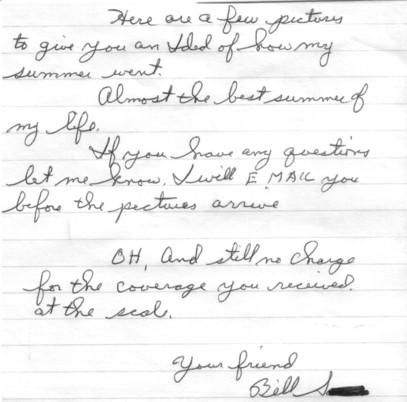 Here are a few pictures
to give you an Idea of how my
summer went.
Almost the best summer of
my life.
If you have any questions
let me know. I will E MAIL you
before the pictures arrive
OH, And still no charge
for the coverage you received.
at the scale.
Your friend
Bill S